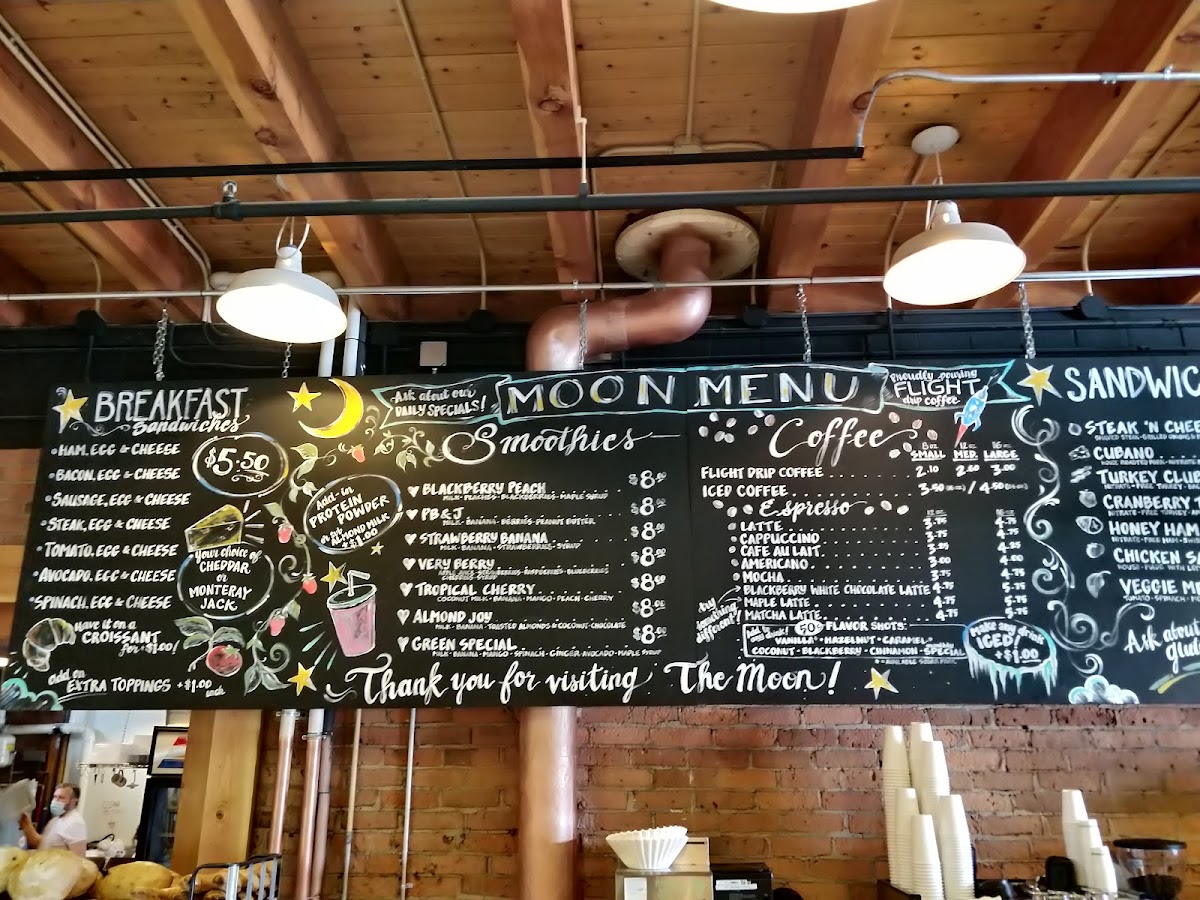 BREAKFAST
Sandwiches
• HAM, EGG & CHEESE
• BACON, EGG & CHEESE
• SAUSAGE, EGG & CHEESE
• STEAK, EGG & CHEESE
• TOMATO, EGG & CHEESE
• AVOCADO, EGG & CHEESE
• SPINACH, EGG & CHEESE
$5.50
Your choice of
CHEDDAR
or
MONTERAY
JACK
Have it on a
CROISSANT
for +$1.00!
add on
EXTRA TOPPINGS +$1.00
each
Ask about our
DAILY SPECIALS!
MOON MENU
Proudly pouring
FLIGHT
drip coffee
Smoothies
Add-in
PROTEIN
POWDER
or sub
ALMOND MILK
+$1.00
BLACKBERRY PEACH $8.00
MILK · PEACHES · BLACKBERRIES · MAPLE SYRUP
PB & J $8.00
MILK · BANANA · BERRIES · PEANUT BUTTER
STRAWBERRY BANANA $8.00
MILK · BANANA · STRAWBERRIES · SYRUP
VERY BERRY $8.00
APPLE JUICE · STRAWBERRIES · RASPBERRIES · BLUEBERRIES
CHERRIES · SYRUP
TROPICAL CHERRY $8.00
COCONUT MILK · BANANA · MANGO · PEACH · CHERRY
ALMOND JOY $8.00
MILK · BANANA · TOASTED ALMONDS & COCONUT · CHOCOLATE
GREEN SPECIAL $8.00
MILK · BANANA · MANGO · SPINACH · GINGER · AVOCADO · MAPLE SYRUP
Coffee
8 oz. 12 oz. 16 oz.
SMALL MED. LARGE
FLIGHT DRIP COFFEE 2.10 2.60 3.00
ICED COFFEE 3.50 (16 oz.) / 4.50
Espresso
12 oz. 16 oz.
LATTE 3.75 4.75
CAPPUCCINO 3.75 4.75
CAFE AU LAIT 3.25 4.25
AMERICANO 3.00
MOCHA 3.75 4.75
BLACKBERRY WHITE CHOCOLATE LATTE 4.75 5.75
MAPLE LATTE 4.75 5.75
MATCHA LATTE 4.75
try
something
different?
Add to
any drink! 50¢ FLAVOR SHOTS:
VANILLA* · HAZELNUT · CARAMEL*
COCONUT · BLACKBERRY · CINNAMON · SPECIAL
* = AVAILABLE SUGAR FREE
Make any drink
ICED!
+$1.00
Thank you for visiting The Moon!
SANDWIC
STEAK 'N CHEE
CUBANO
TURKEY CLUB
CRANBERRY T
HONEY HAM
CHICKEN S
VEGGIE M
Ask about
glu